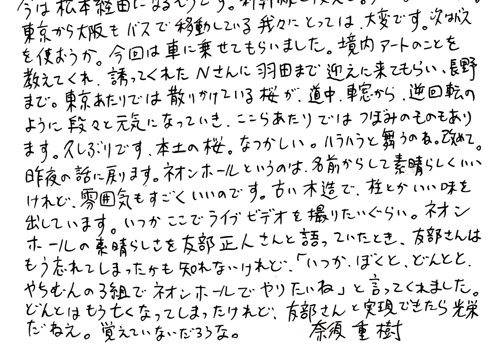 今は松本経由になるそうです。新幹線も使える
東京から大阪もバスで移動している我々にとっては、大変です。次はバス
を使おうか。今回は車に乗せてもらいました。境内アートのことを
教えてくれ、誘ってくれたNさんに羽田まで迎えに来てもらい、長野
まで。東京あたりでは散りかけている桜が、道中、車窓から、逆回転の
ように段々と元気になっていき、ここらあたりではつぼみのものもあり
ます。久しぶりです、本土の桜。なつかしい。ハラハラと舞うのね。改めて。
昨夜の話に戻ります。ネオンホールというのは、名前からして素晴らしくいい
けれど、雰囲気もすごくいいのです。古い木造で、柱とかいい味を
出しています。いつかここでライブビデオを撮りたいぐらい。ネオン
ホールの素晴らしさを友部正人さんと語っていたとき、友部さんは
もう忘れてしまったかも知れないけれど、「いつか、ぼくと、どんとと、
やちむんの3組でネオンホールでやりたいね」と言ってくれました。
どんとはもう亡くなってしまったけれど、友部さんと実現できたら光栄
だねえ。覚えていないだろうな。 奈須重樹